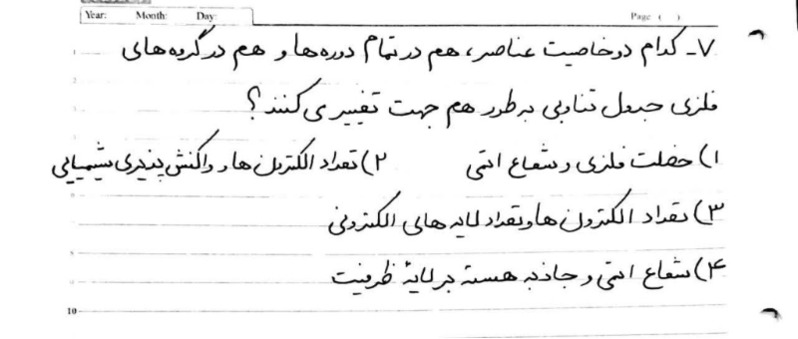 Year: Month: Day: Page: ( )
۷- کدام دو خاصیت عناصر، هم در تمام دوره‌ها و هم در گروه‌های
فلزی جدول تناوبی به طور هم جهت تغییر می‌کنند؟
۱) خصلت فلزی و شعاع اتمی ۲) تعداد الکترون‌ها و واکنش‌پذیری شیمیایی
۳) تعداد الکترون‌ها و تعداد لایه‌های الکترونی
۴) شعاع اتمی و جاذبه هسته بر لایهٔ ظرفیت
10